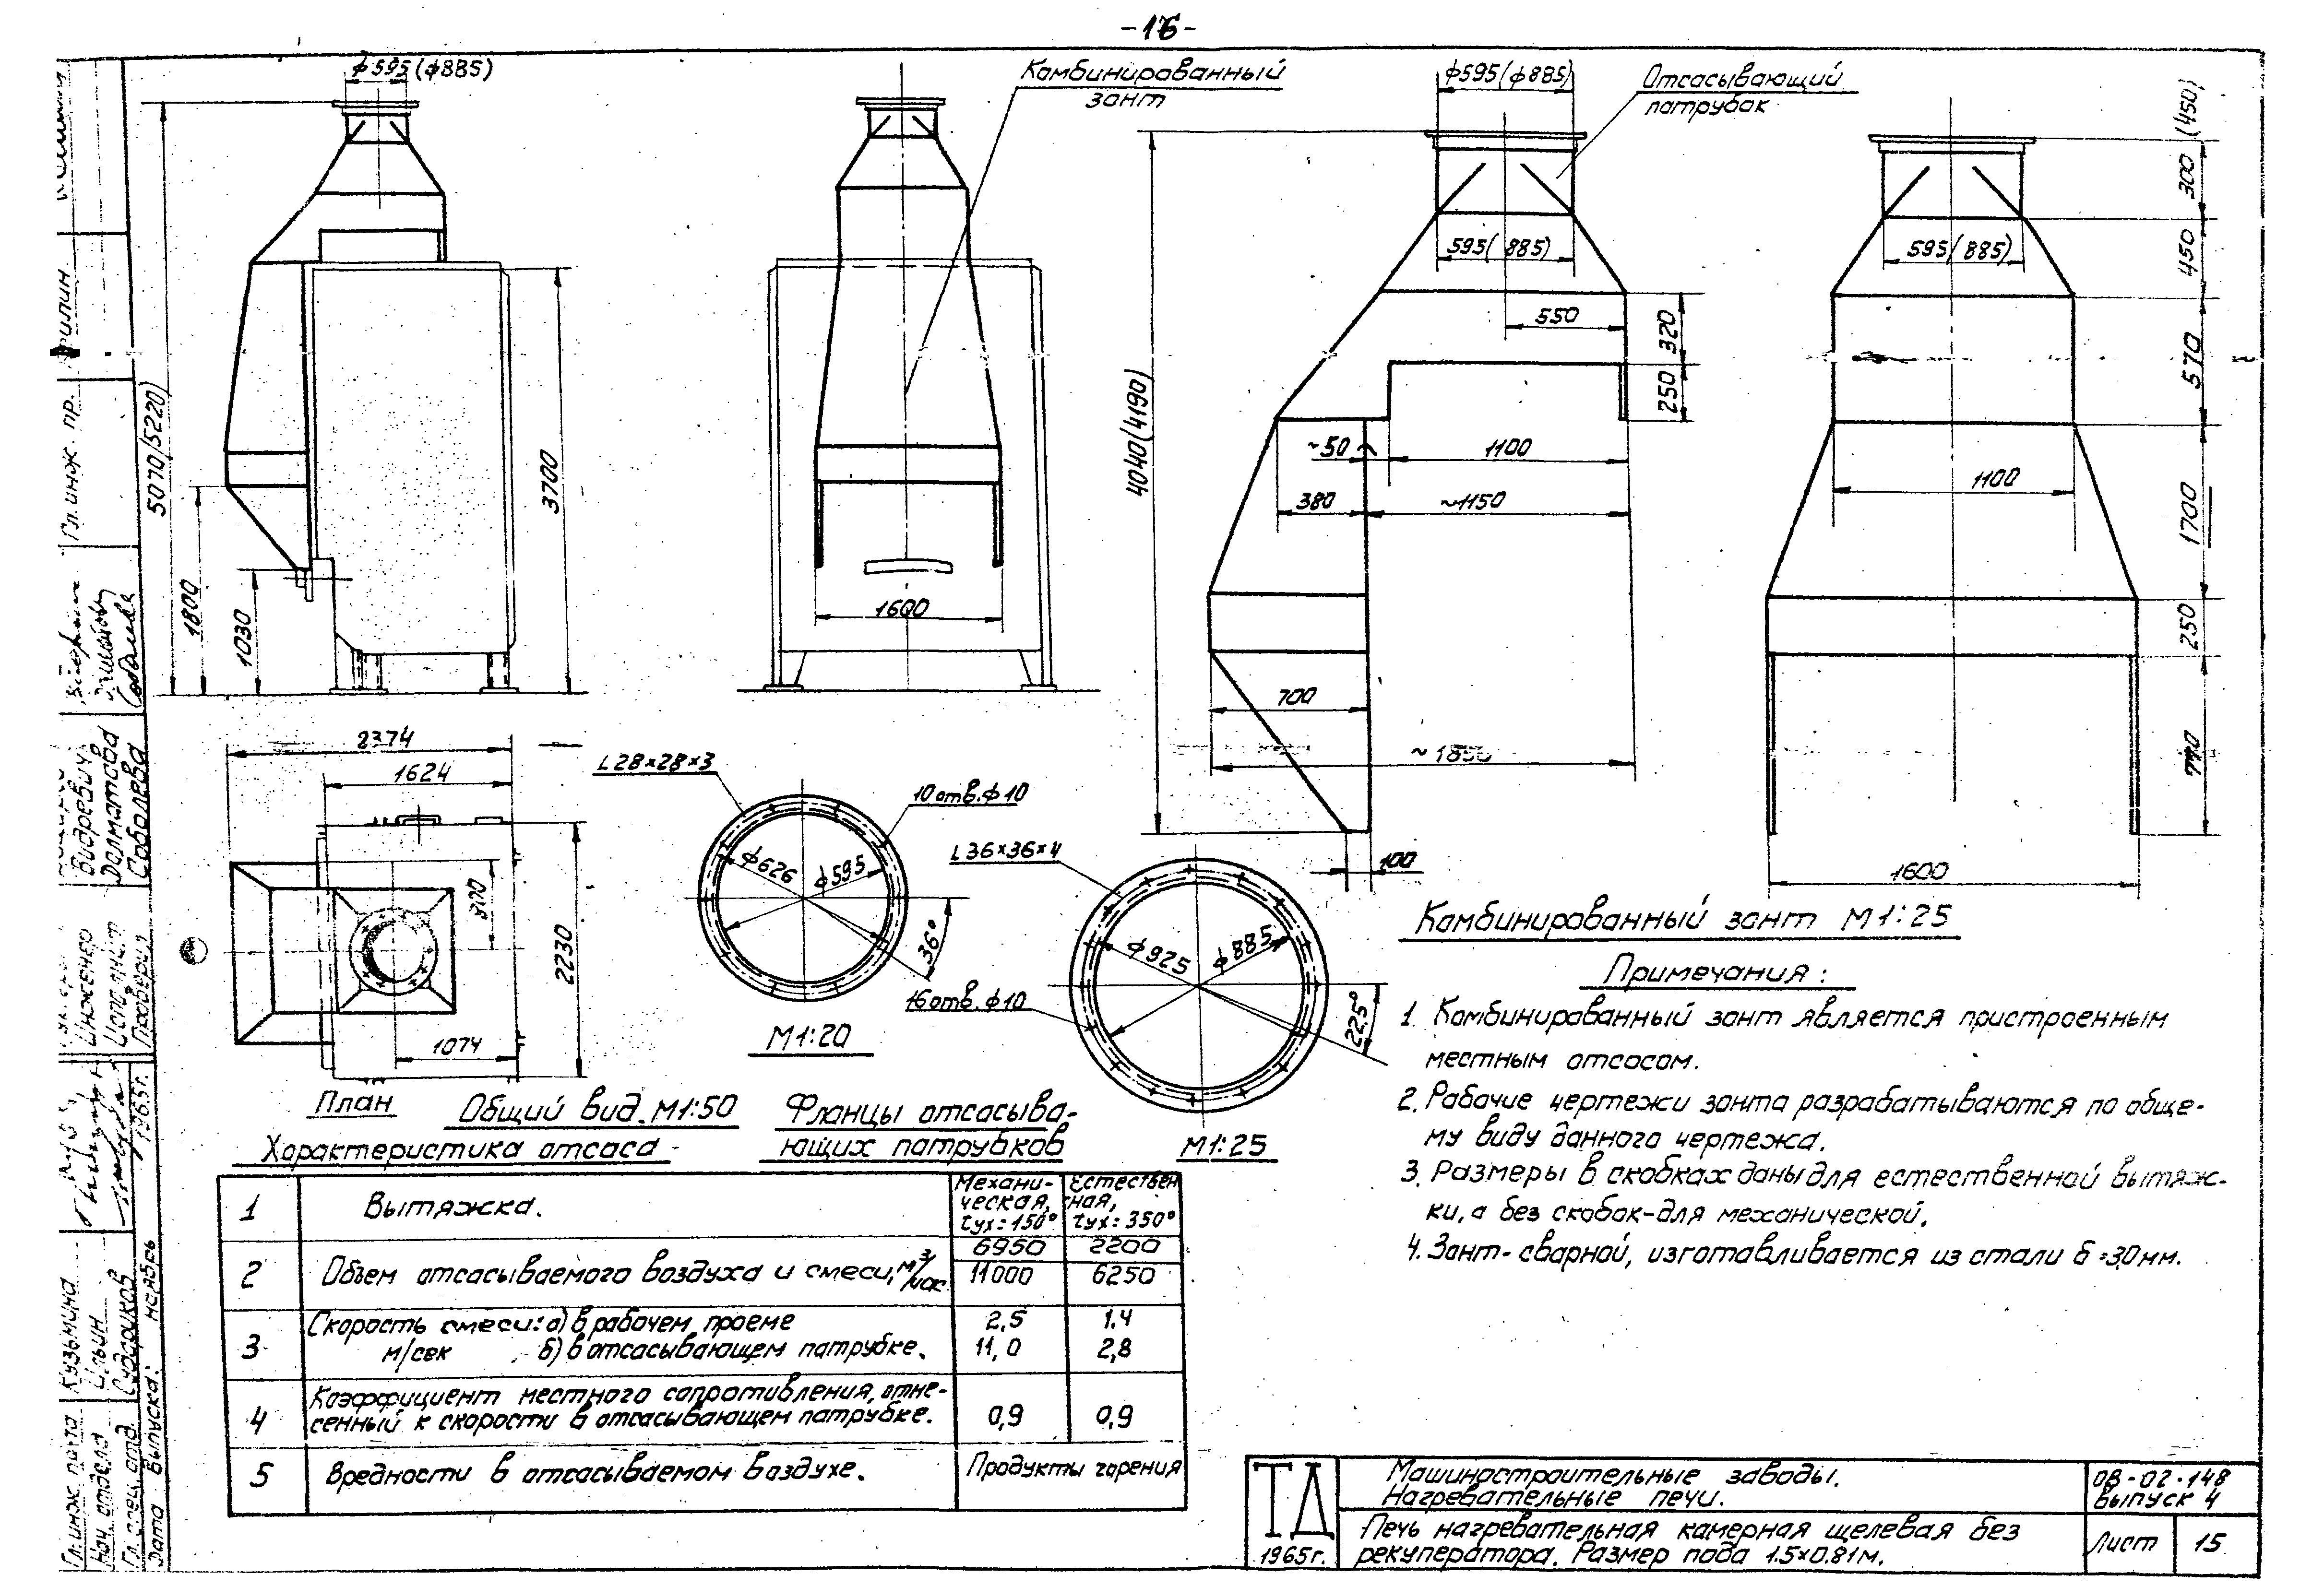 -16-
ф595(ф885)
Комбинированный
зонт
ф595(ф885)
Отсасывающий
патрубок
(450)
300
450
570
1700
250
770
5070(5220)
1800
1030
3700
1600
4040(4190)
595(885)
550
320
250
~50
1100
380
~1150
700
~1850
100
595(885)
1100
1600
2374
1624
800
2230
1074
L28×28×3
10 отв. ф10
ф626
ф595
36°
М1:20
L36×36×4
16 отв. ф10
ф925
ф885
22,5°
М1:25
План
Общий вид. М1:50
Фланцы отсасыва-
ющих патрубков
Комбинированный зонт М1:25
Примечания:
1. Комбинированный зонт является пристроенным
местным отсосом.
2. Рабочие чертежи зонта разрабатываются по обще-
му виду данного чертежа.
3. Размеры в скобках даны для естественной вытяж-
ки, а без скобок-для механической.
4. Зонт-сварной, изготавливается из стали б=3,0мм.
Характеристика отсоса
1 Вытяжка. Механи-ческая, tух=150° Естествен-ная, tух=350°
2 Объем отсасываемого воздуха и смеси, м³/час 6950 2200
11000 6250
3 Скорость смеси: а) в рабочем проеме 2,5 1.4
м/сек б) в отсасывающем патрубке. 11,0 2,8
4 Коэффициент местного сопротивления, отне-
сенный к скорости в отсасывающем патрубке. 0,9 0,9
5 Вредности в отсасываемом воздухе. Продукты горения
ТД
1965г.
Машиностроительные заводы.
Нагревательные печи.
ОВ-02-148
Выпуск 4
Печь нагревательная камерная щелевая без
рекуператора. Размер пода 1.5×0.81м.
Лист 15
Гл. инж. пр.
Видревич
Долматова
Соболева
Инженер
Исполнит
Проверил
1965г.
Кузьмина
Ильин
Судариков
ноябрь
Нач. отдела
Гл. спец. отд.
Дата выпуска: